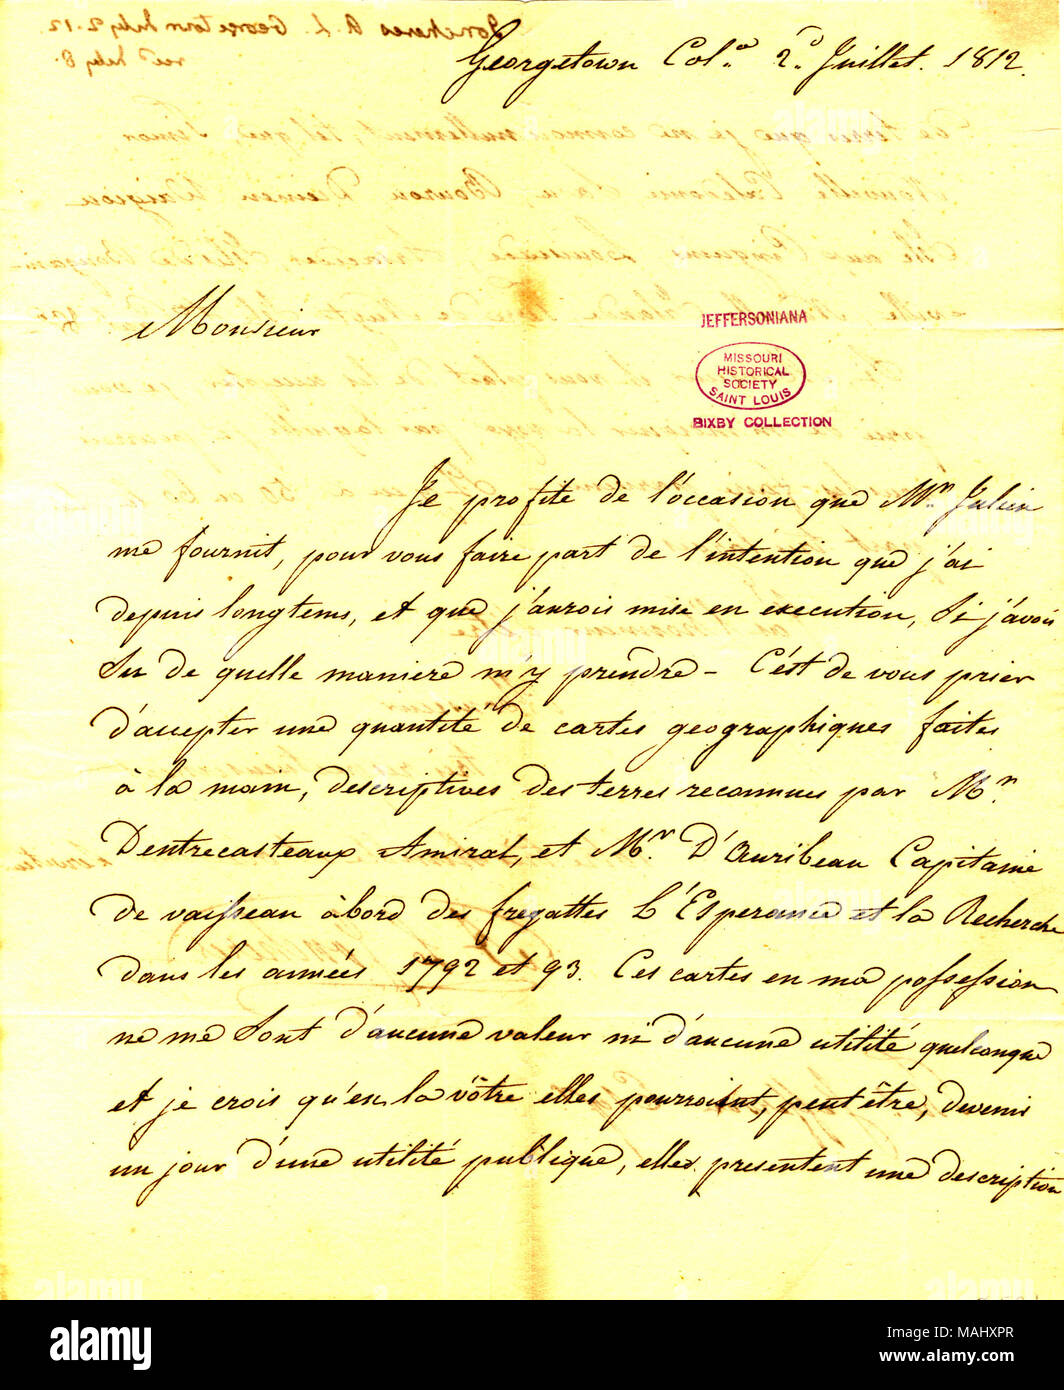 Georgetown Col.ª 2.d Juillet. 1812.
Monsieur
JEFFERSONIANA
MISSOURI
HISTORICAL
SOCIETY
SAINT LOUIS
BIXBY COLLECTION
Je profite de l'occasion que Mr. Julien
me fournit, pour vous faire part de l'intention que j'ai
depuis longtems, et que j'aurois mise en execution, Si j'avois
Su de quelle maniere m'y prendre - C'est de vous prier
d'accepter une quantité de cartes geographiques faites
à la main, descriptives des terres reconnues par Mr.
Dentrecasteaux Amiral, et Mr. D'Auribeau Capitaine
de vaisseau àbord des fregattes L'Esperance et la Recherche
dans les années 1792 et 93. Ces cartes en ma possession
ne me Sont d'aucune valeur ni d'aucune utilité quelconque
et je crois qu'en la vôtre elles pourroient, peut être, devenir
un jour d'une utilité publique, elles presentent une description
alamy
Image ID: MAHXPR
www.alamy.com